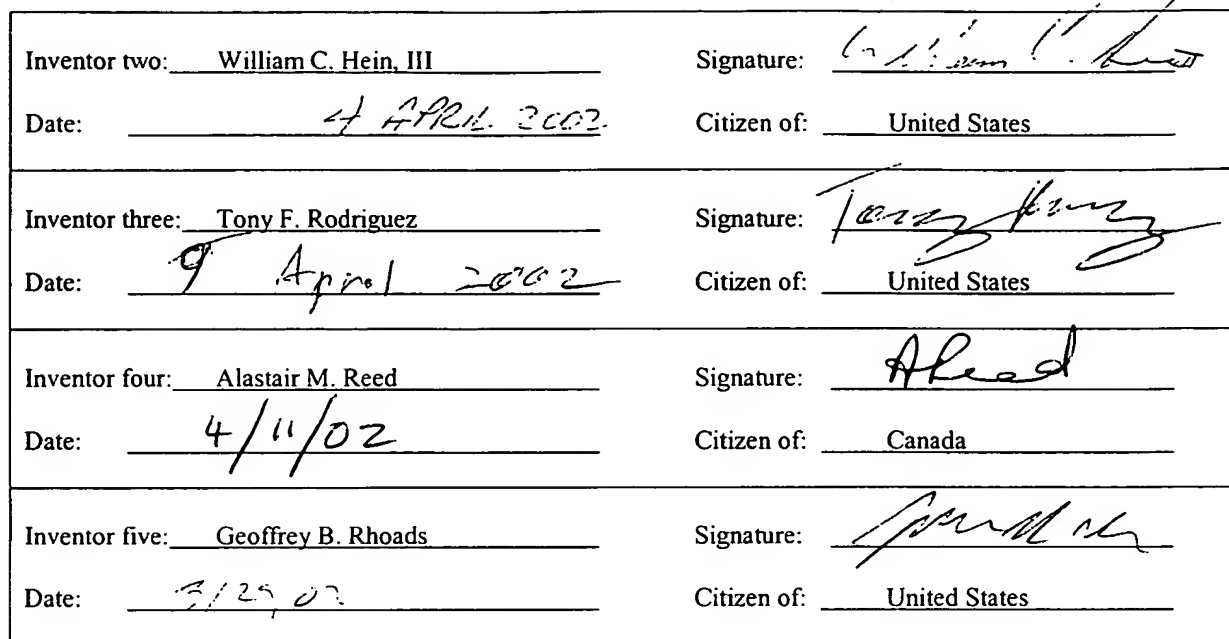 Inventor two: William C. Hein, III Signature: William C. Hein III
Date: 4 APRIL 2002. Citizen of: United States
Inventor three: Tony F. Rodriguez Signature: Tony
Date: 9 April 2002 Citizen of: United States
Inventor four: Alastair M. Reed Signature: AReed
Date: 4/11/02 Citizen of: Canada
Inventor five: Geoffrey B. Rhoads Signature:
Date: 3/29/02 Citizen of: United States